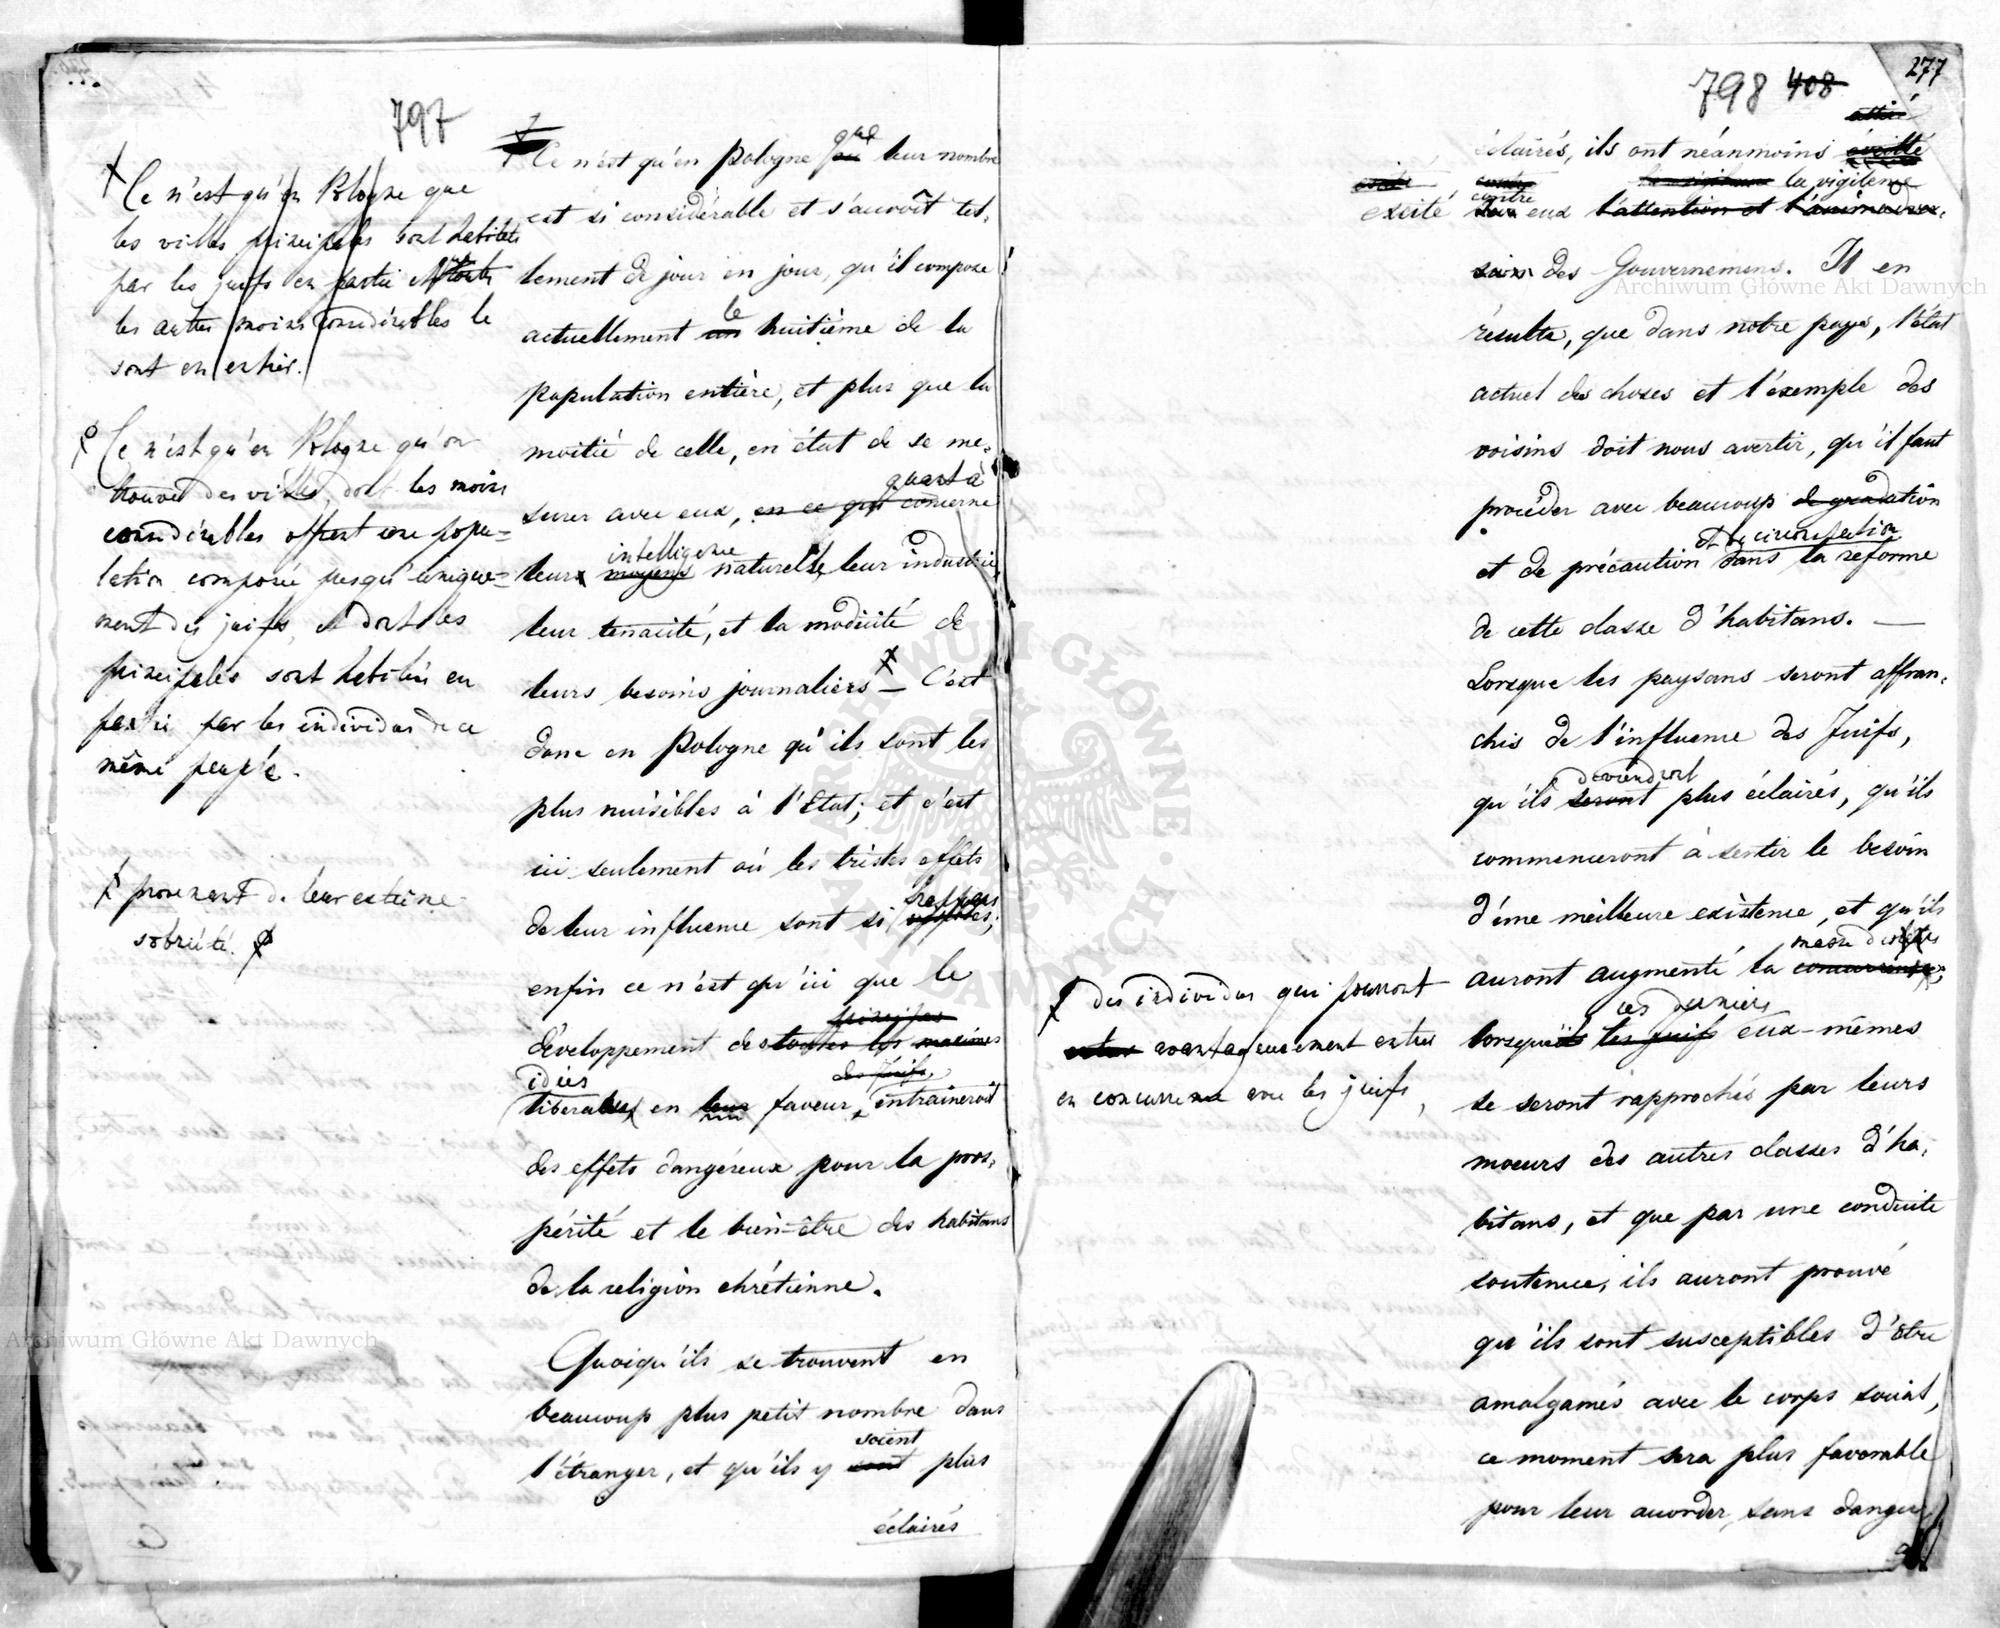 797
Ce n'est qu'en Pologne que
les villes principales sont habitées
par les juifs en partie et toutes
les autres moins considérables le
sont en entier.
Ce n'est qu'en Pologne qu'on
trouve des villes, dont les moins
considérables offrent une popu=
lation composée presqu'unique=
ment des juifs, et dont les
principales sont habitées en
partie par les individus de ce
même peuple.
provenant de leur extrême
sobriété.
que
Ce n'est qu'en Pologne où leur nombre
est si considérable et s'accroît tel-
lement de jour en jour, qu'il compose
le
actuellement un huitième de la
population entière, et plus que la
moitié de celle, en état de se me-
quant à
surer avec eux, en ce qui concerne
intelligence
leurs moyens naturelle, leur industrie,
leur tenacité, et la modicité de
leurs besoins journaliers — C'est
donc en Pologne qu'ils sont les
plus nuisibles à l'Etat; et c'est
ici seulement où les tristes effets
frappans
de leur influence sont si
enfin ce n'est qu'ici que le
principes
développement des toutes les maximes
idées
des juifs,
liberales en leur faveur, entraineroit
des effets dangéreux pour la pros-
périté et le bien-être des habitans
de la religion chrétienne.
Quoiqu'ils se trouvent en
beaucoup plus petit nombre dans
soient
l'étranger, et qu'ils y sont plus
éclairés
798 408
277
éclairés, ils ont néanmoins éveillé
contre
la vigilence
la vigilance
excité sur eux l'attention et l'animadver-
contre
sion des Gouvernemens. Il en
résulte, que dans notre pays, l'état
actuel des choses et l'éxemple des
voisins doit nous avertir, qu'il faut
procéder avec beaucoup de gradation
et de circonspection
et de précaution dans la reforme
de cette classe d'habitans. —
Lorsque les paysans seront affran-
chis de l'influence des Juifs,
deviendront
qu'ils seront plus éclairés, qu'ils
commenceront à sentir le besoin
d'une meilleure existence, et qu'ils
masse
auront augmenté la concurrence;
ces derniers
lorsqu'ils les juifs eux-mêmes
se seront rapprochés par leurs
moeurs des autres classes d'ha-
bitans, et que par une conduite
soutenue, ils auront prouvé
qu'ils sont susceptibles d'être
amalgamés avec le corps social,
ce moment sera plus favorable
pour leur accorder, sans danger
des individus qui pourront
entrer avantageusement entrer
en concurrence avec les juifs,
Archiwum Główne Akt Dawnych
Archiwum Główne Akt Dawnych
ARCHIWUM GŁÓWNE AKT DAWNYCH